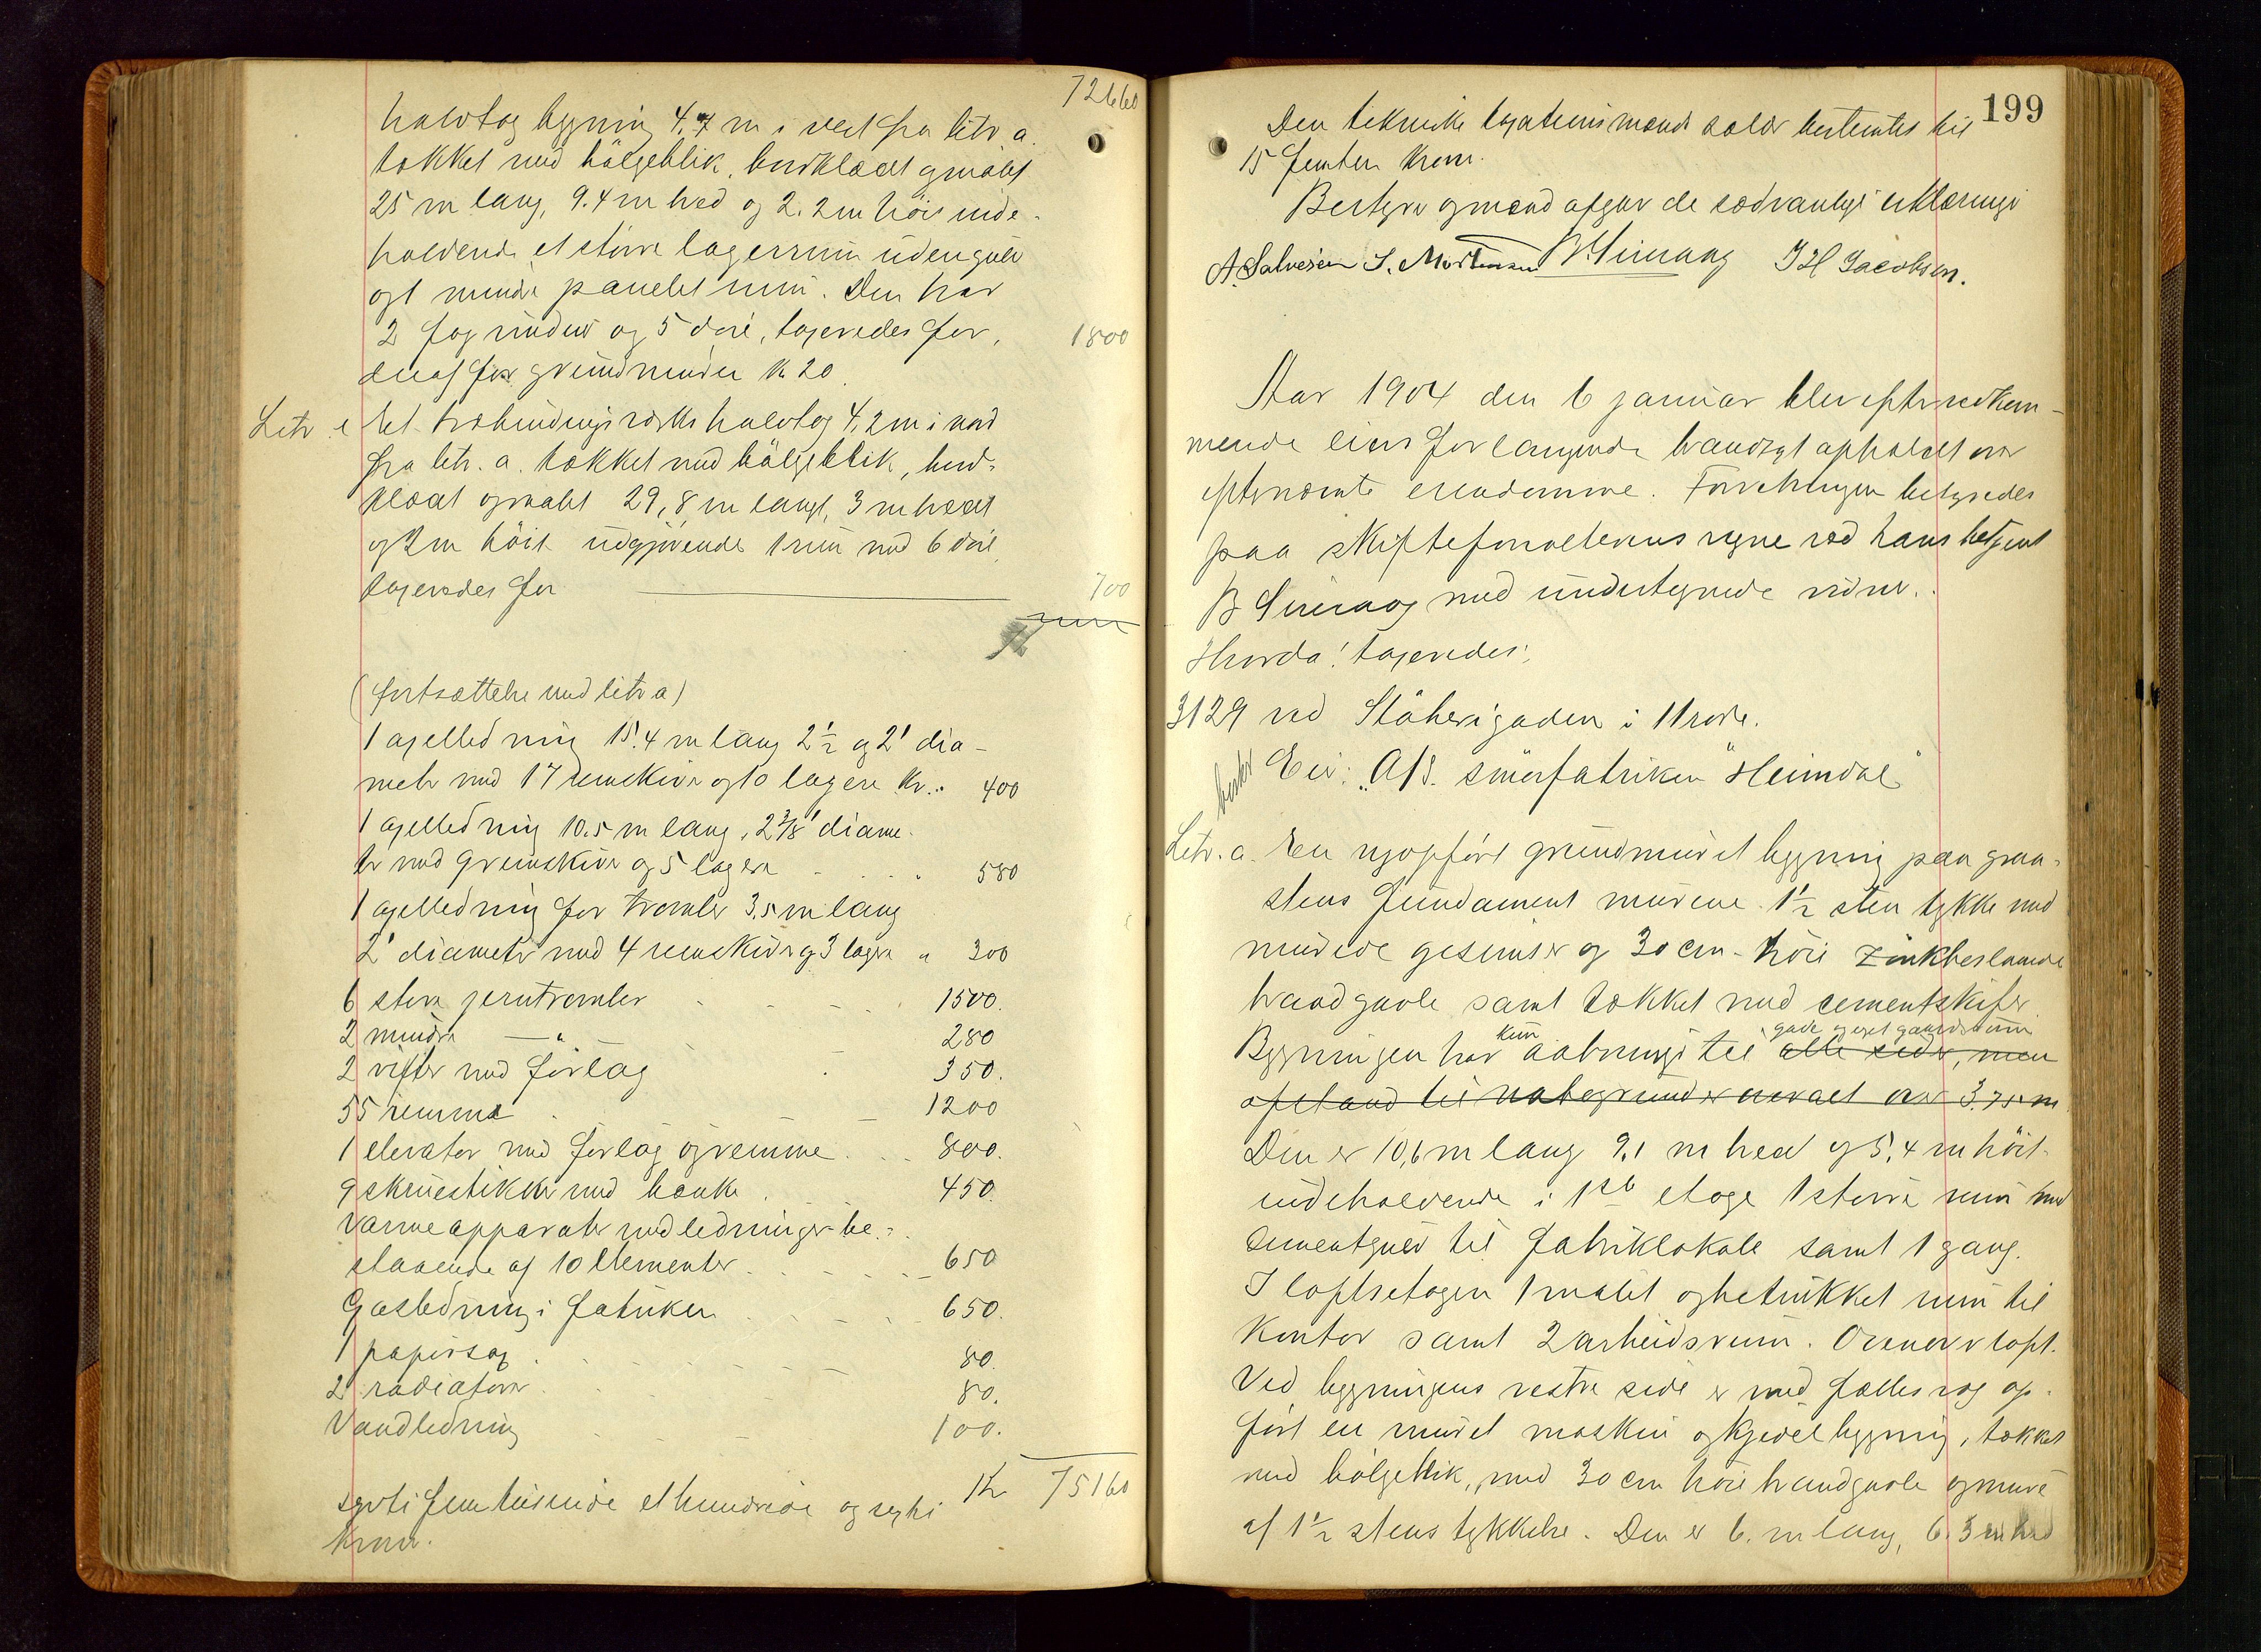 72660
halvtag bygning 4.7 m i vest fra litr a.
tækket med bölgeblik, bordklædt og malet
25 m lang, 9.4 m bred og 2.2 m höi inde-
holdende et större lagerrum uden gulv
og 1 mindre panelet rum. Den har
2 fag vinduer og 5 döre, taxeredes for, 1800
deraf for grundmuren Kr 20.
Litr e Et træbindingsværks halvtag 4,2 m i nord
fra litr. a. tækket med bölgeblik, bord-
klædt og malet 29,8 m langt, 3 m bredt
og 2 m höit udgjörende 1 rum med 6 döre,
taxeredes for 700
(fortsættelse med litr a)
1 axelledning 15.4 m lang 2 1/2 og 2" dia-
meter med 17 remskiver og 10 lagere Kr. 400
1 axelledning 10.5 m lang, 2 3/8" diame-
ter med 9 remskiver og 5 lagere 580
1 axelledning for tromler 3.5 m lang
2" diameter med 4 remskiver og 3 lagere " 300
6 store jerntromler 1500.
2 mindre — " 280
2 vifter med forlag 350.
55 remme 1200
1 elevator med forlag og remme 800.
9 skruestikker med bænke 450.
Varmeapparater med ledninger be-
staaende af 10 elementer 650
Gasledning i fabriken 650.
1 papirsax 80.
2 radiatorer 80.
Vandledning 100.
Kr 75160
sytti fem tusinde et hundrede og sexti
kroner.
199
Den tekniske taxationsmands salær bestemtes til
15 femten kroner.
Bestyrer og mænd afgav de sædvanlige erklæringer
A. Salvesen S. Mortensen B Simaog J H Jacobsen.
Aar 1904 den 6 januar blev efter vedkom-
mende eiers forlangende brandtaxt afholdt over
efternævnte eiendomme. Forretningen bestyredes
paa skifteforvalterens vegne ved hans betjent
B Simaog med undertegnede vidner.
Hvorda! taxeredes:
3129 ved Stöherigaden i 11 rode.
Eier: "A/S. smörfabriken "Heimdal"
Litr. a. En nyopfört grundmuret bygning paa graa-
stens fundament murene 1 1/2 sten tykke med
murede gesimser og 30 cm. höie zinkbeslaaede
brandgavle samt tækket med cementskifer.
Bygningen har kun aabninger til gade og eget gaardsrum alle sider, men
afstand til nabogrund er overalt over 3.75 m
Den er 10,6 m lang 9,1 m bred og 5,4 m höi
indeholdende i 1ste etage 1 större rum med
cementgulv til fabriklokale samt 1 gang.
I loftsetagen 1 malet og betrukket rum til
Kontor samt 2 arbeidsrum. Ovenover loft.
Ved bygningens vestre side er med fælles væg op-
fört en muret maskin og kjedelbygning, tækket
med bölgeblik, med 30 cm höie brandgavle og mure
af 1 1/2 stens tykkelse. Den er 6. m lang, 6.3 m bred